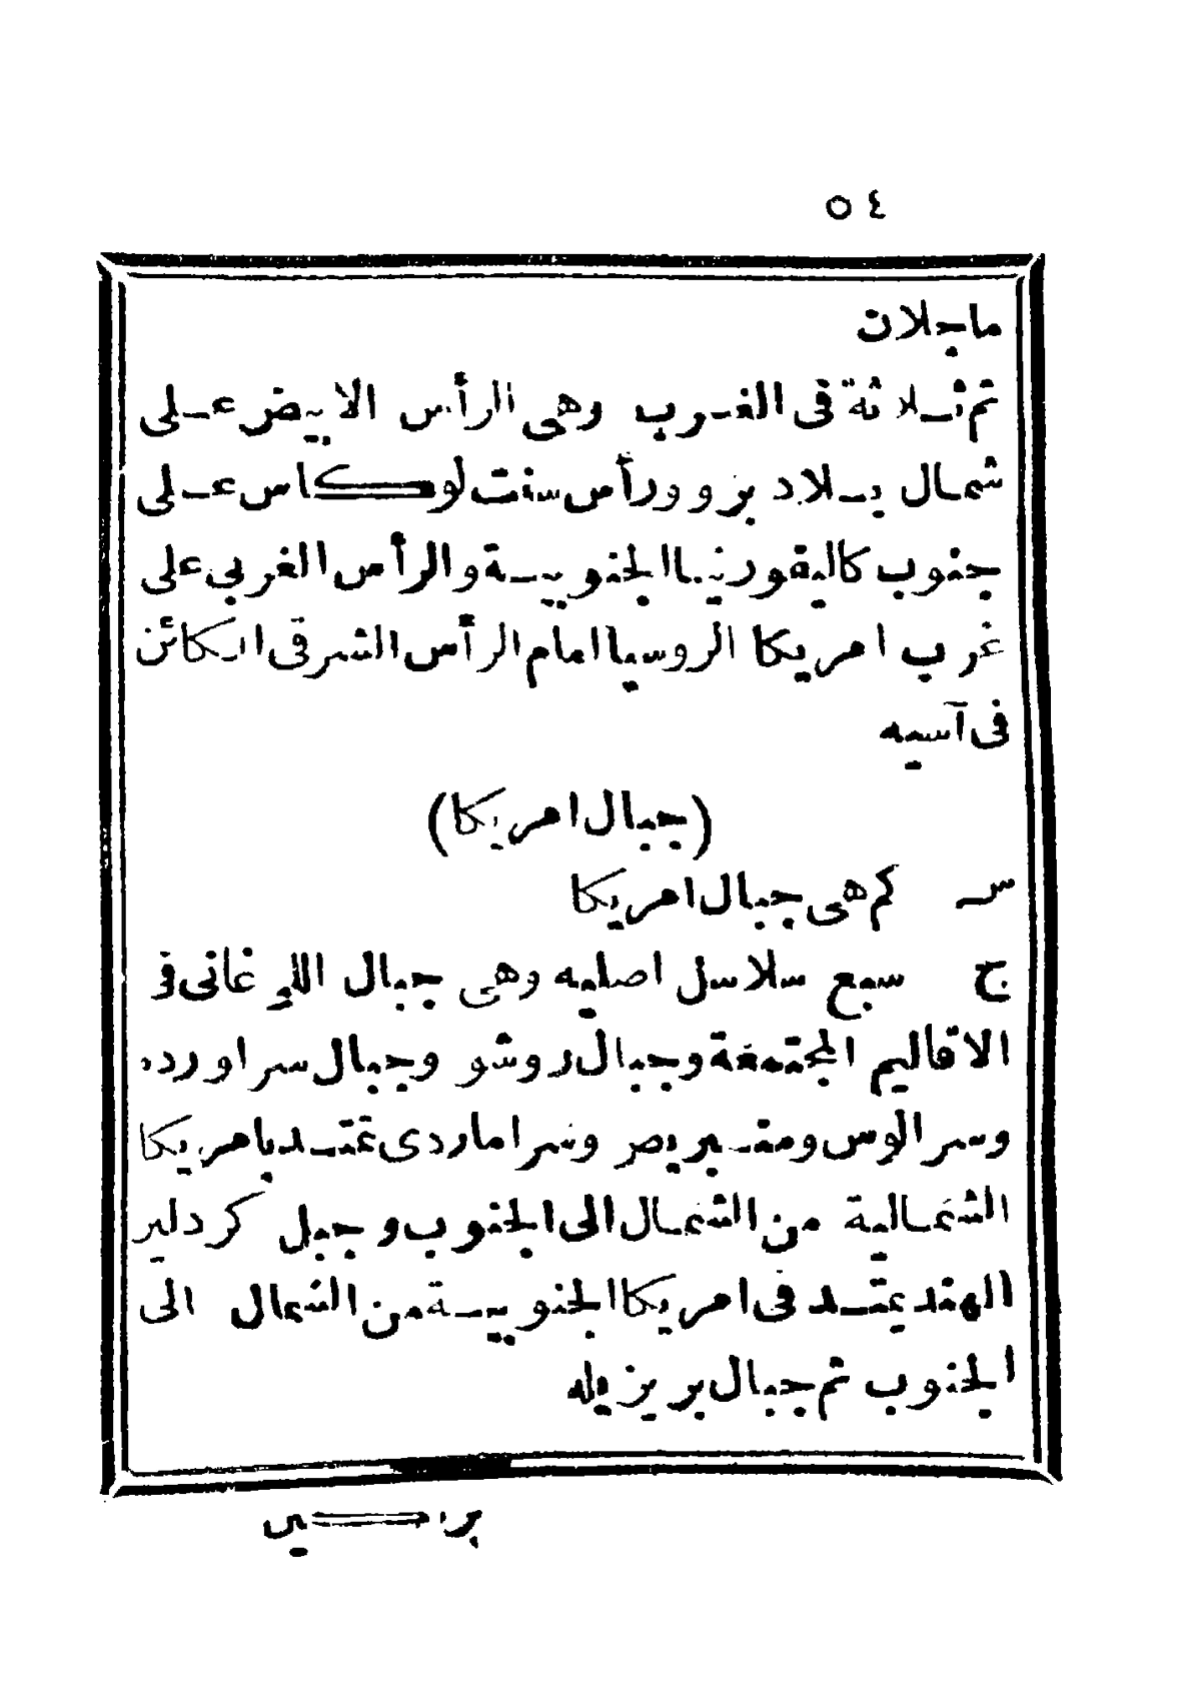 ٥٤
ماجلان
ثم ثلاثة فى الغرب وهى الرأس الابيض على
شمال بلاد برو ورأس سنت لوكاس على
جنوب كاليفورنيا الجنوبية والرأس الغربى على
غرب امريكا الروسيا امام الرأس الشرقى الكائن
فى آسيه
(جبال امريكا)
س كم هى جبال امريكا
ج سبع سلاسل اصليه وهى جبال الليغانى فى
الاقاليم المجتمعة وجبال روشو وجبال سراورده
وسرالوس ومنبريص وسراماردى تمتد بامريكا
الشمالية من الشمال الى الجنوب وجبل كردلير
الهند يمتد فى امريكا الجنوبية من الشمال الى
الجنوب ثم جبال بريزيله